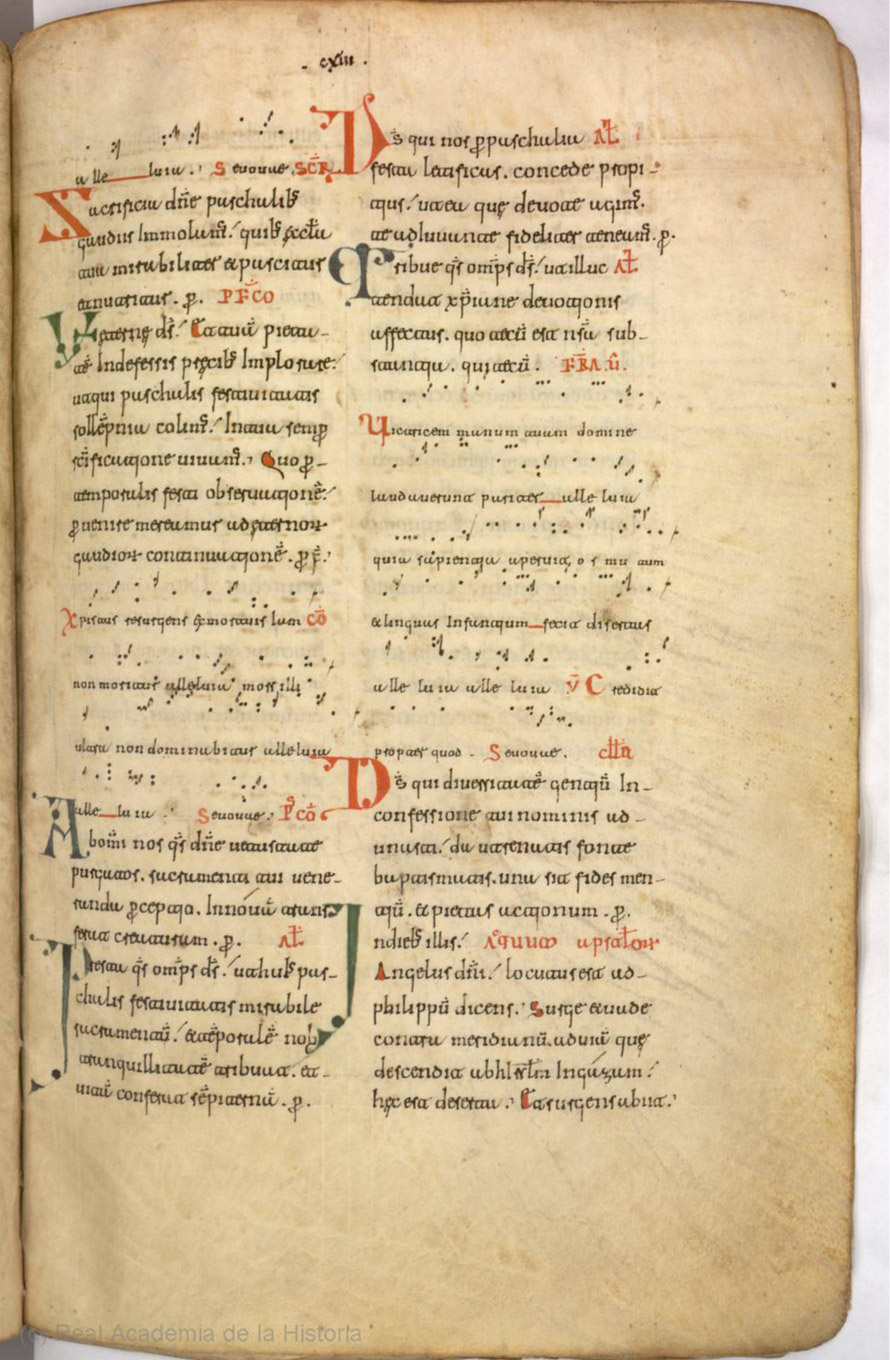 . cxiii .
alle___luia . Sevovae . SCR̄
Sacrificia dn̄e paschalib;
gaudiis Immolam̄. quib; ęcct̄a
tua mirabiliter & pascitur
et nutritur . p̱. PF̄CO
VD ęternę ds̄. Et tuā pieta-
tē Indefessis precib; Implorare.
ut qui paschalis festivitatis
sollēpnia colim̄. In tua semp̱
sc̄ificatione vivam̄. Quo p̱-
temporalis festi observationē.
p̱venire mereamur ad ęternorum
gaudiorum continuationē . p̱ x̄.
Xpistus resurgens ex mortuis Iam CŌ
non moritur alleluia mors illi
ultra non dominabitur alleluia
alle__luia . Sevovae . Pˢ CŌ
Ab om̄i nos qs̄ dn̄e vetustate
purgatos . sacramenti tui vene-
randa p̱ceptio . In novā trans-
ferat creaturam . p̱. AL̄
Presta qs̄ omp̄s ds̄. ut huius pas-
chalis festivitatis mirabile
sacramentū. & tēporalē nob;
tranquillitatē tribuat . et
vitā conferat sēpiternā . p̱.
Ds̄ qui nos p̱ paschalia AL̄
festa letificas . concede propi-
tius. ut ea quę devote agim̄.
te adiuvante fideliter teneam̄ . p̱.
Tribue qs̄ omp̄s ds̄. ut illuc AL̄
tendat xp̄iane devotionis
affectus . quo tecū est nr̄a sub-
stantia . qui tecū. FR̄A .V̄.
Victricem manum tuam domine
laudaverunt pariter__alle luia
quia sapientia aperuit os mutum
& linguas Infantium__fecit disertas
alle luia alle luia V̄ Credidi
propter quod . Sevovae . cLLā
Ds̄ qui diversitatē gentiū In-
confessione tui nominis ad-
unasti. da ut renatis fonte
baptismatis . una sit fides men-
tiū . & pietas actionum . p̱.
In dieb; illis. Actuum apstōlor
Angelus dn̄i. locutus est ad-
philippū dicens. Surge & vade
contra meridianū . ad viā quę
descendit ab hīrl̄m In gazam.
hęc est deserta. Et surgens abiit.
(c) Real Academia de la Historia